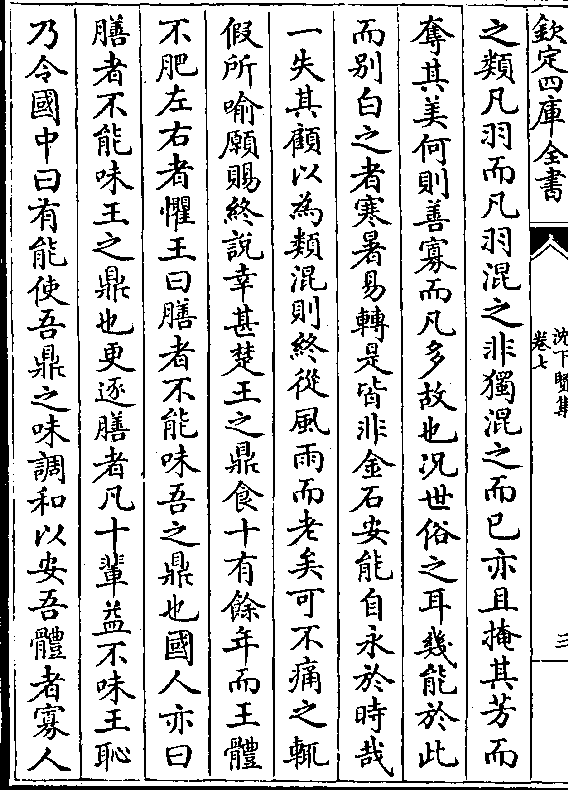 欽定四庫全書
沈下賢集
卷七
三
之類凡羽而凡羽混之非獨混之而已亦且掩其芳而
奪其美何則善寡而凡多故也况世俗之耳幾能於此
而别白之者寒暑易轉是皆非金石安能自永於時哉
一失其顧以為類混則終從風雨而老矣可不痛之輒
假所喻願賜終說幸甚楚王之鼎食十有餘年而王體
不肥左右者懼王曰膳者不能味吾之鼎也國人亦曰
膳者不能味王之鼎也更逐膳者凡十輩益不味王恥
乃令國中曰有能使吾鼎之味調和以安吾體者寡人